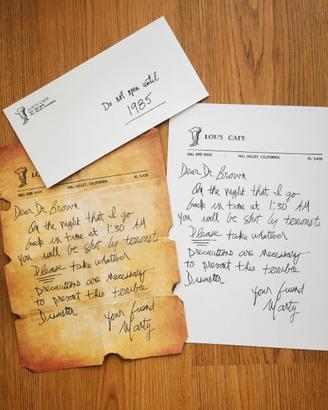 LOU'S CAFE
Do not open until
1985
LOU'S CAFE
HILL VALLEY, CALIFORNIA
Dear Dr. Brown
On the night that I go
back in time at 1:30 AM
You will be shot by terrorists
Please take whatever
precautions are necessary
to prevent this terrible
Disaster
Your friend
Marty
LOU'S CAFE
HILL VALLEY, CALIFORNIA
Dear Dr. Brown
On the night that I go
back in time at 1:30 AM
You will be shot by terrorists
Please take whatever
precautions are necessary
to prevent this terrible
Disaster
Your friend
Marty